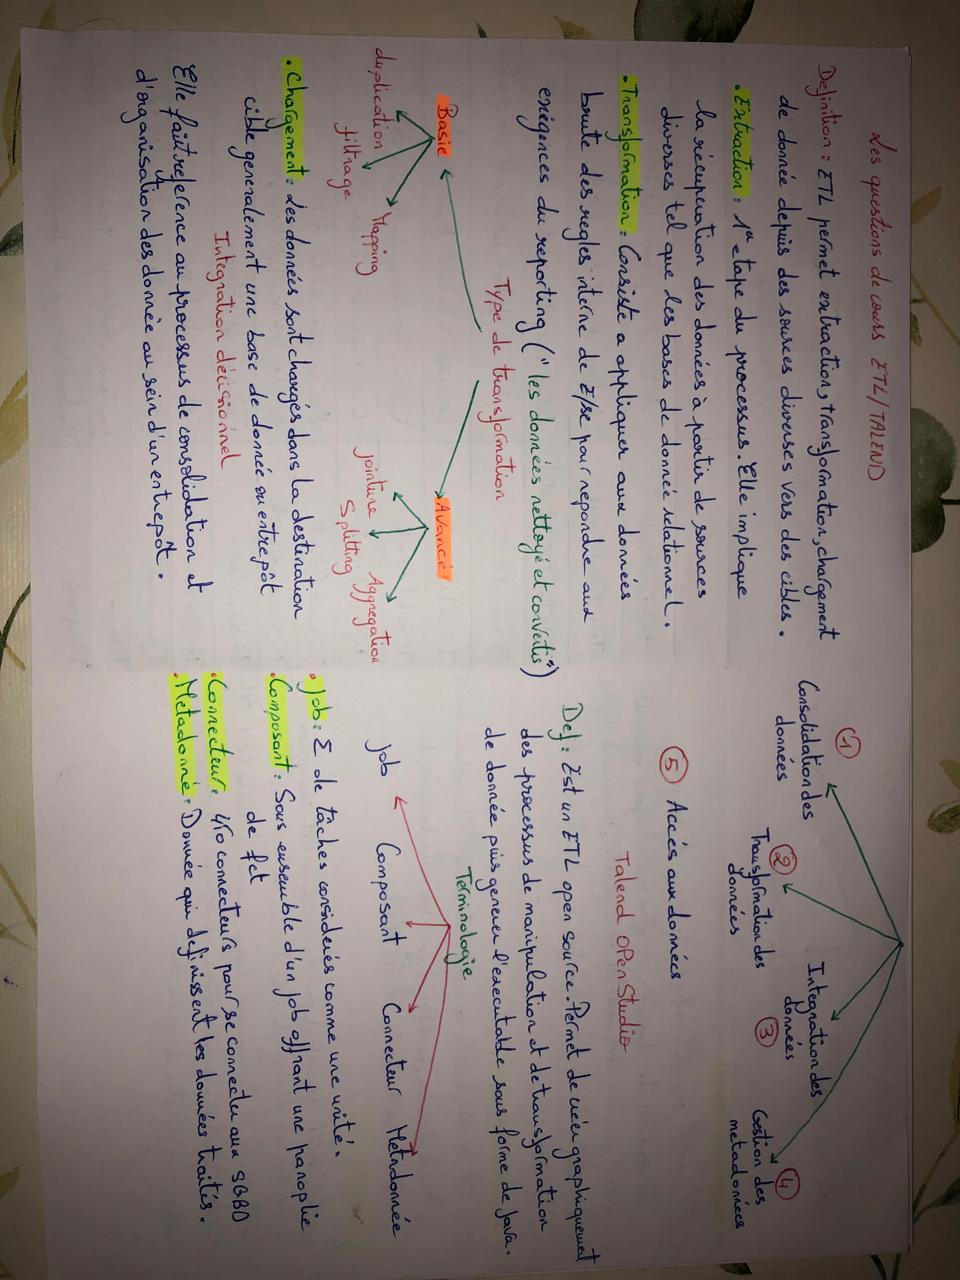 Les questions de cours ETL/TALEND
Definition : ETL permet extraction, transformation, chargement
de donnée depuis des sources diverses vers des cibles.
• Extraction : 1er etape du processus. Elle implique
la récuperation des données à partir de sources
diverses tel que les bases de donneé relationnel.
• Transformation : Consiste a appliquer aux données
brute des regles interne de E/se pour repondre aux
exigences du reporting ("les données nettoyé et convertis")
Type de transformation
Basic
Avancé
duplication
filtrage
Mapping
jointure
Splitting
Aggregation
• Chargement : Les données sont chargés dans la destination
cible generalement une base de donnée ou entrepôt
Integration décisionnel
Elle fait reference au processus de consolidation et
d'organisation des donnée au sein d'un entrepôt.
1
Consolidation des
données
2
Transformation des
données
Integration des
données
3
4
Gestion des
metadonnées
5 Accés aux données
Talend OPen Studio
Def : Est un ETL open source. Permet de créer graphiquement
des processus de manipulation et de transformation
de donnée puis generer l'executable sous forme de Java.
Terminologie
Job
Composant
Connecteur
Metadonnée
• Job : Σ de tâches considerés comme une unité.
• Composant : Sous ensemble d'un job offrant une panoplie
de fct
• Connecteur : 450 connecteurs pour se connecter aux SGBD
• Metadonné : Donnée qui definissent les données traités.